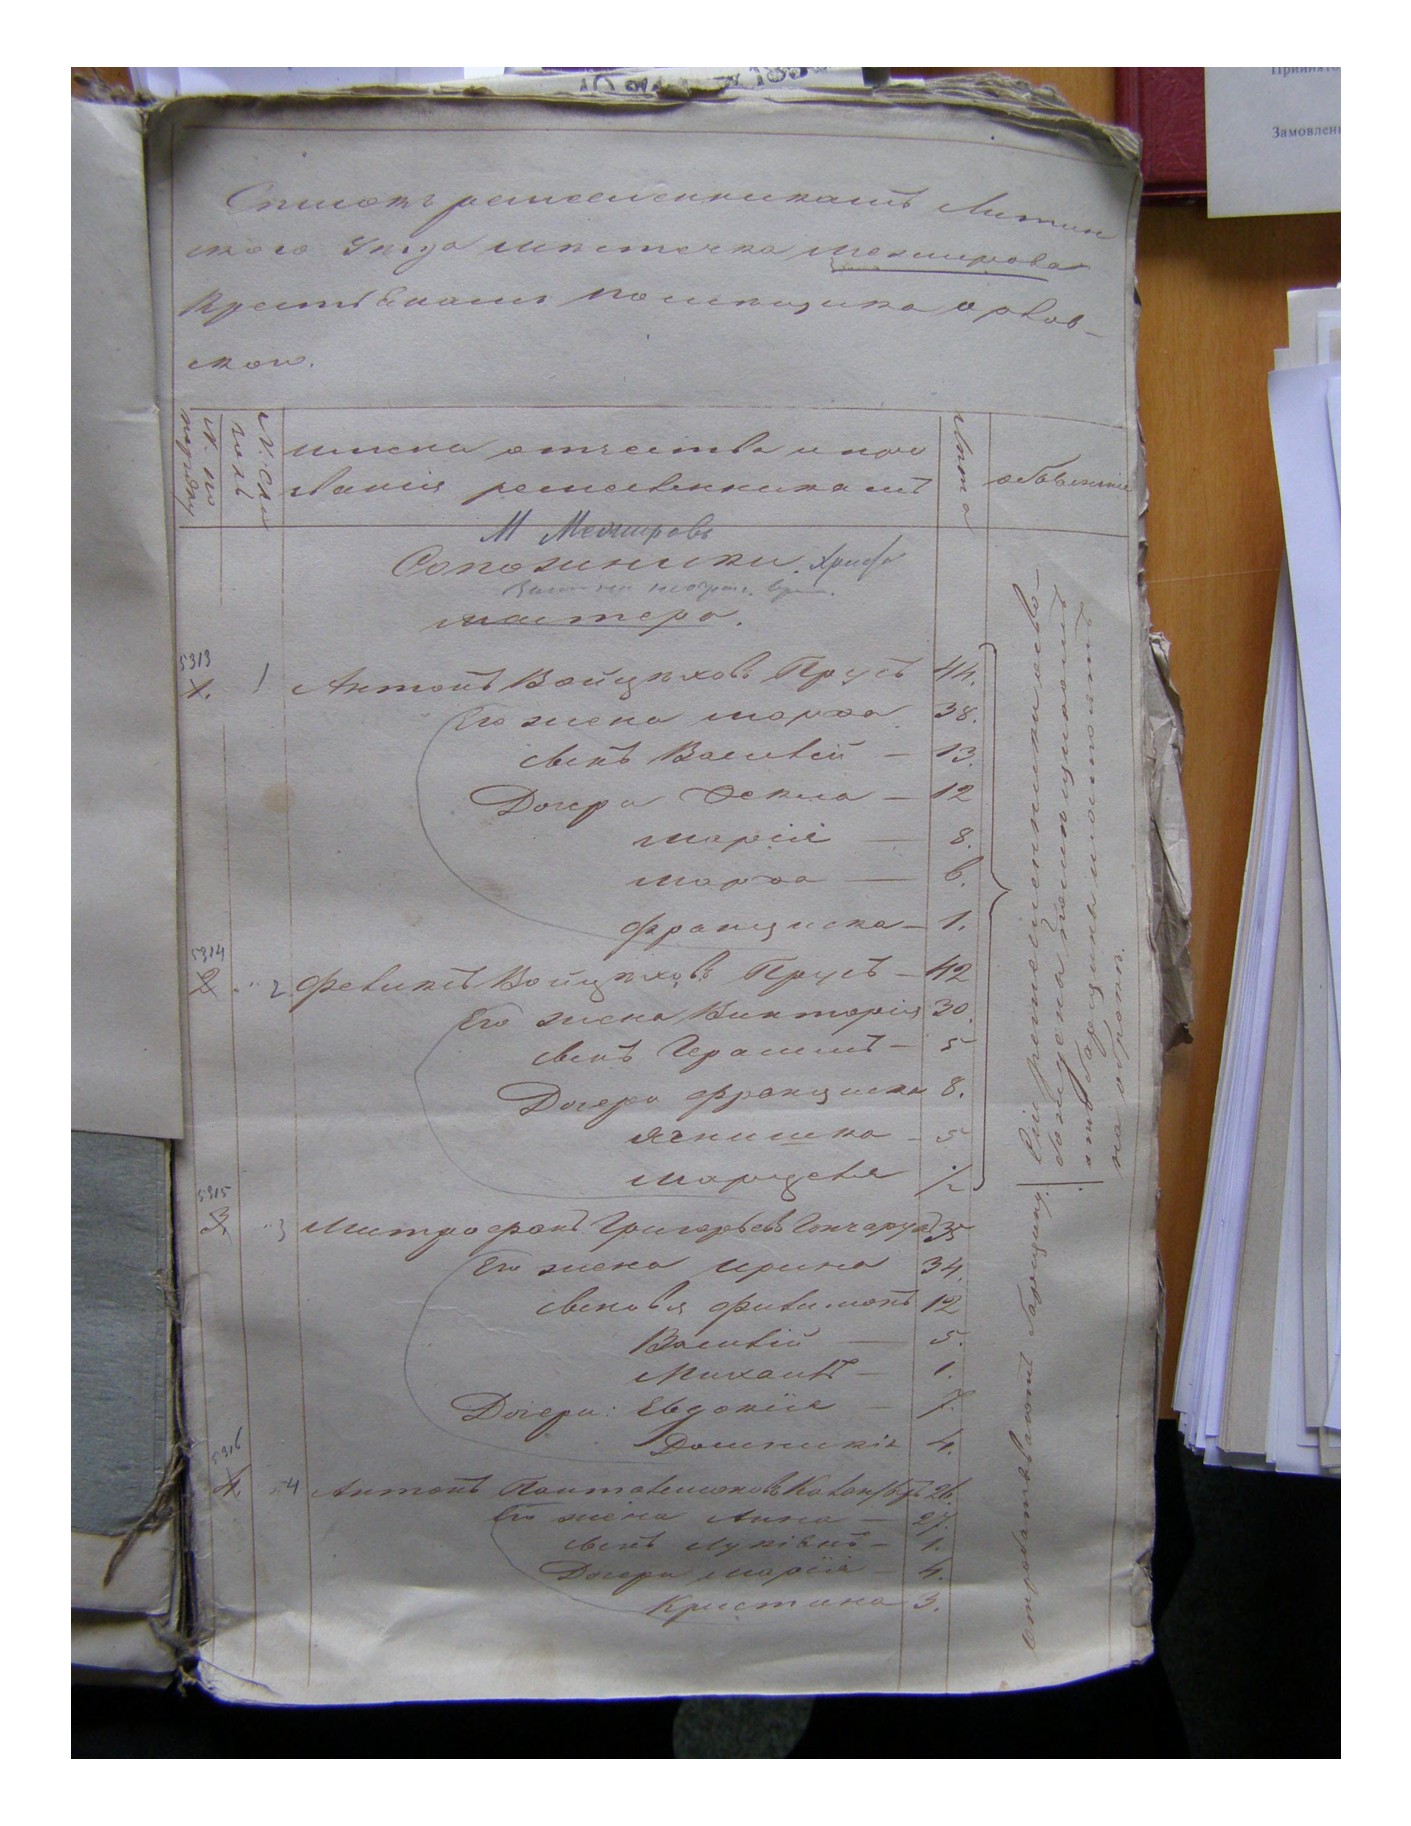 Принято
Замовлен
Списокъ ремесленникамъ Литин
ского Уезда местечка Межирова
Крестьянамъ помещика Орлов-
ского.
№ по порядку
имена отчества и про
звания ремесленникамъ
Лета
объяснение
М Межировъ
Сапожники.
мастера.
5313
1. 1 Антонъ Войцеховъ Прусъ 44.
Его жена Марха 38.
сынъ Василій — 13.
Дочери Фекла — 12
Марія — 8.
Марха — 6.
Франциска — 1.
5314
2 2 Феликсъ Войцеховъ Прусъ — 42
Его жена Викторія 30.
сынъ Герасимъ — 5
Дочери Франциска 8.
Ягнишка — 5
Марцеля ½
5315
3 3 Митрофанъ Григорьевъ Гончарукъ 35
Его жена Ирина 34.
сыновья Филимонъ 12
Василій — 5.
Михаилъ — 1.
Дочери: Евдокія — 7.
Доминикія 4.
5316
4. 4 Антонъ Панталимоновъ 26.
Его жена Анна — 27.
сынъ Лукіянъ — 1.
Дочери Марія — 4.
Кристина 3.
Сіи ремесленники
помещикомъ
отъ барщины и
на оброкъ.
отработываютъ барщину.